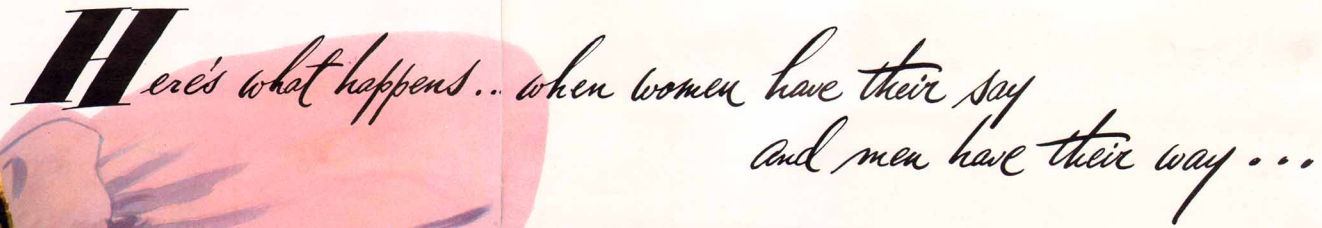 Here's what happens... when women have their say
and men have their way...